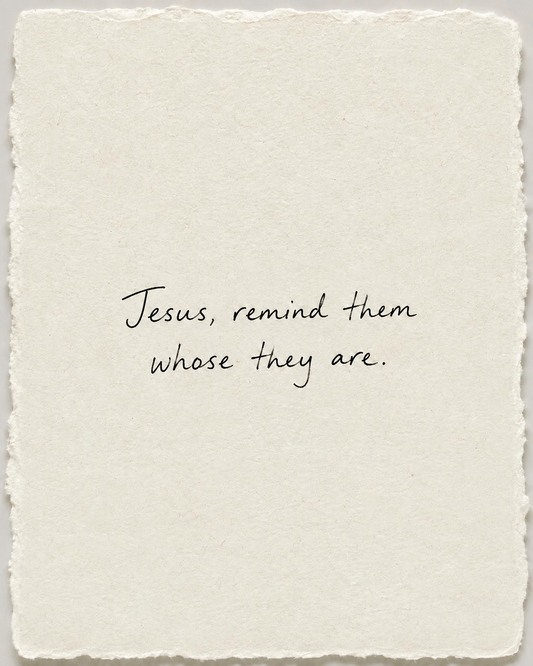 Jesus, remind them
whose they are.